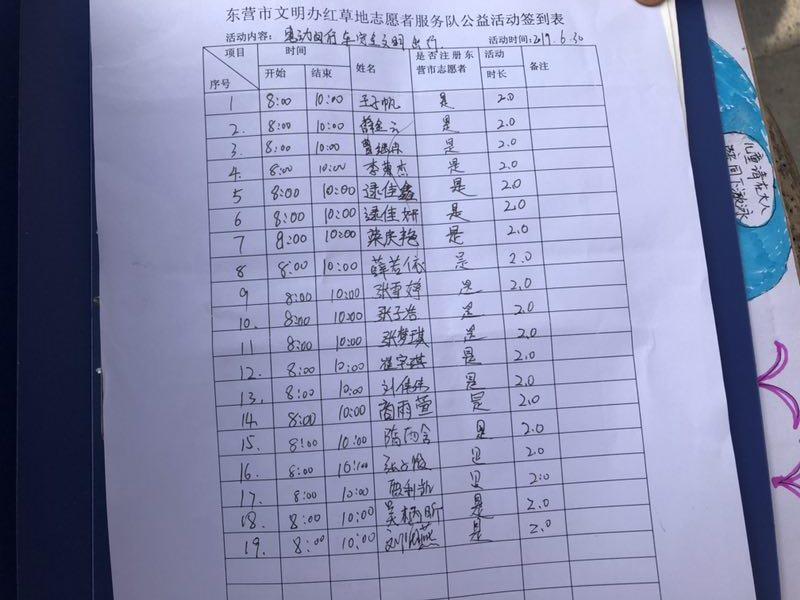 东营市文明办红草地志愿者服务队公益活动签到表
活动内容: 电动自行车安全文明出行. 活动时间: 2019.6.30
项目 时间 姓名 是否注册东营市志愿者 活动时长 备注
序号 开始 结束
1 8:00 10:00 王子帆 是 2.0
2. 8:00 10:00 是 2.0
3. 8:00 10:00 是 2.0
4. 8:00 10:00 李 杰 是 2.0
5 8:00 10:00 逯佳鑫 是 2.0
6 8:00 10:00 逯佳妍 是 2.0
7 8:00 10:00 荣庆艳 是 2.0
8 8:00 10:00 薛若依 是 2.0
9 8:00 10:00 张雪婷 是 2.0
10. 8:00 10:00 张子浩 是 2.0
11 8:00 10:00 张梦琪 是 2.0
12. 8:00 10:00 崔宇琪 是 2.0
13. 8:00 10:00 刘伟伟 是 2.0
14 8:00 10:00 商雨萱 是 2.0
15. 8:00 10:00 隋 含 是 2.0
16. 8:00 10:00 张子俊 是 2.0
17. 8:00 10:00 是 2.0
18. 8:00 10:00 吴 昕 是 2.0
19. 8:00 10:00 刘 燕 是 2.0
儿童请在大人
陪同下游泳